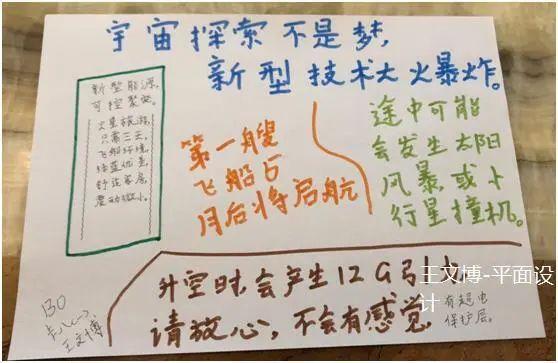 宇宙探索不是梦，
新型技术大火暴炸。
新型能源，
可控聚变。
火星旅游，
只需三天，
飞船环境，
舒适客房，
震动微小。
第一艘
飞船占
月后将启航
途中可能
会发生太阳
风暴或小
行星撞机。
升空时会产生12G引力
请放心，不会有感觉
有超电
保护层。
王文博
王文博-平面设
计